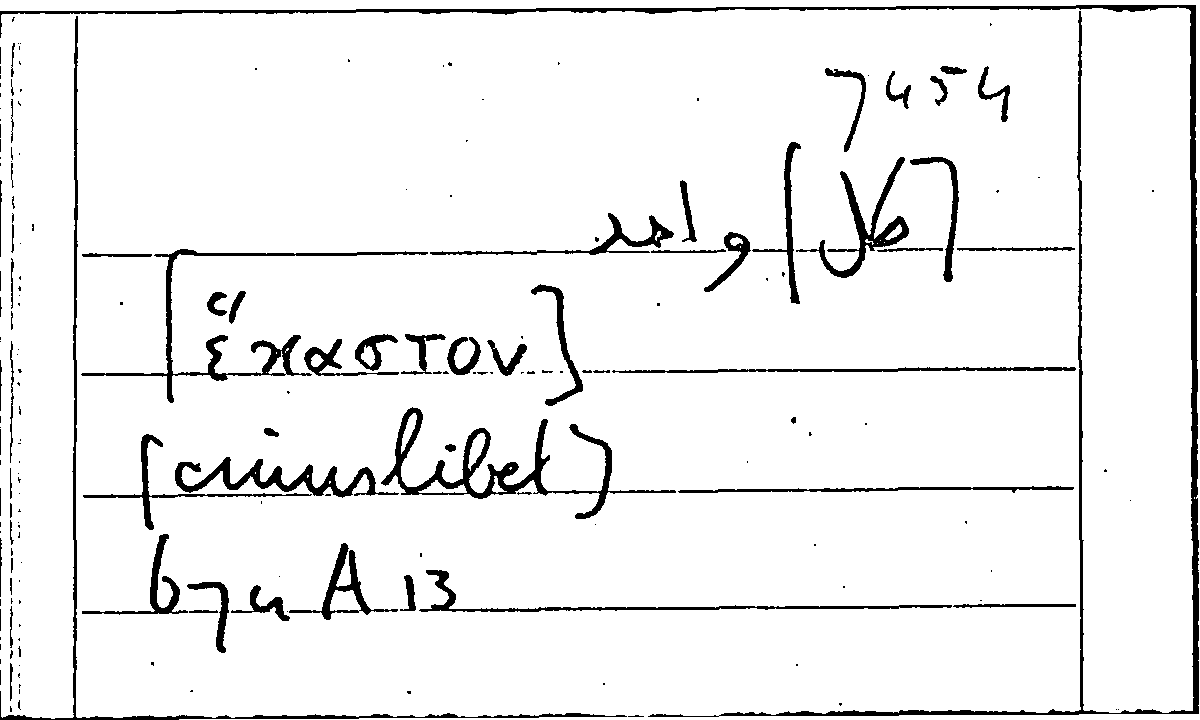 7454
[كل] واحد
[ἕκαστον]
[cuiuslibet]
67a A 13